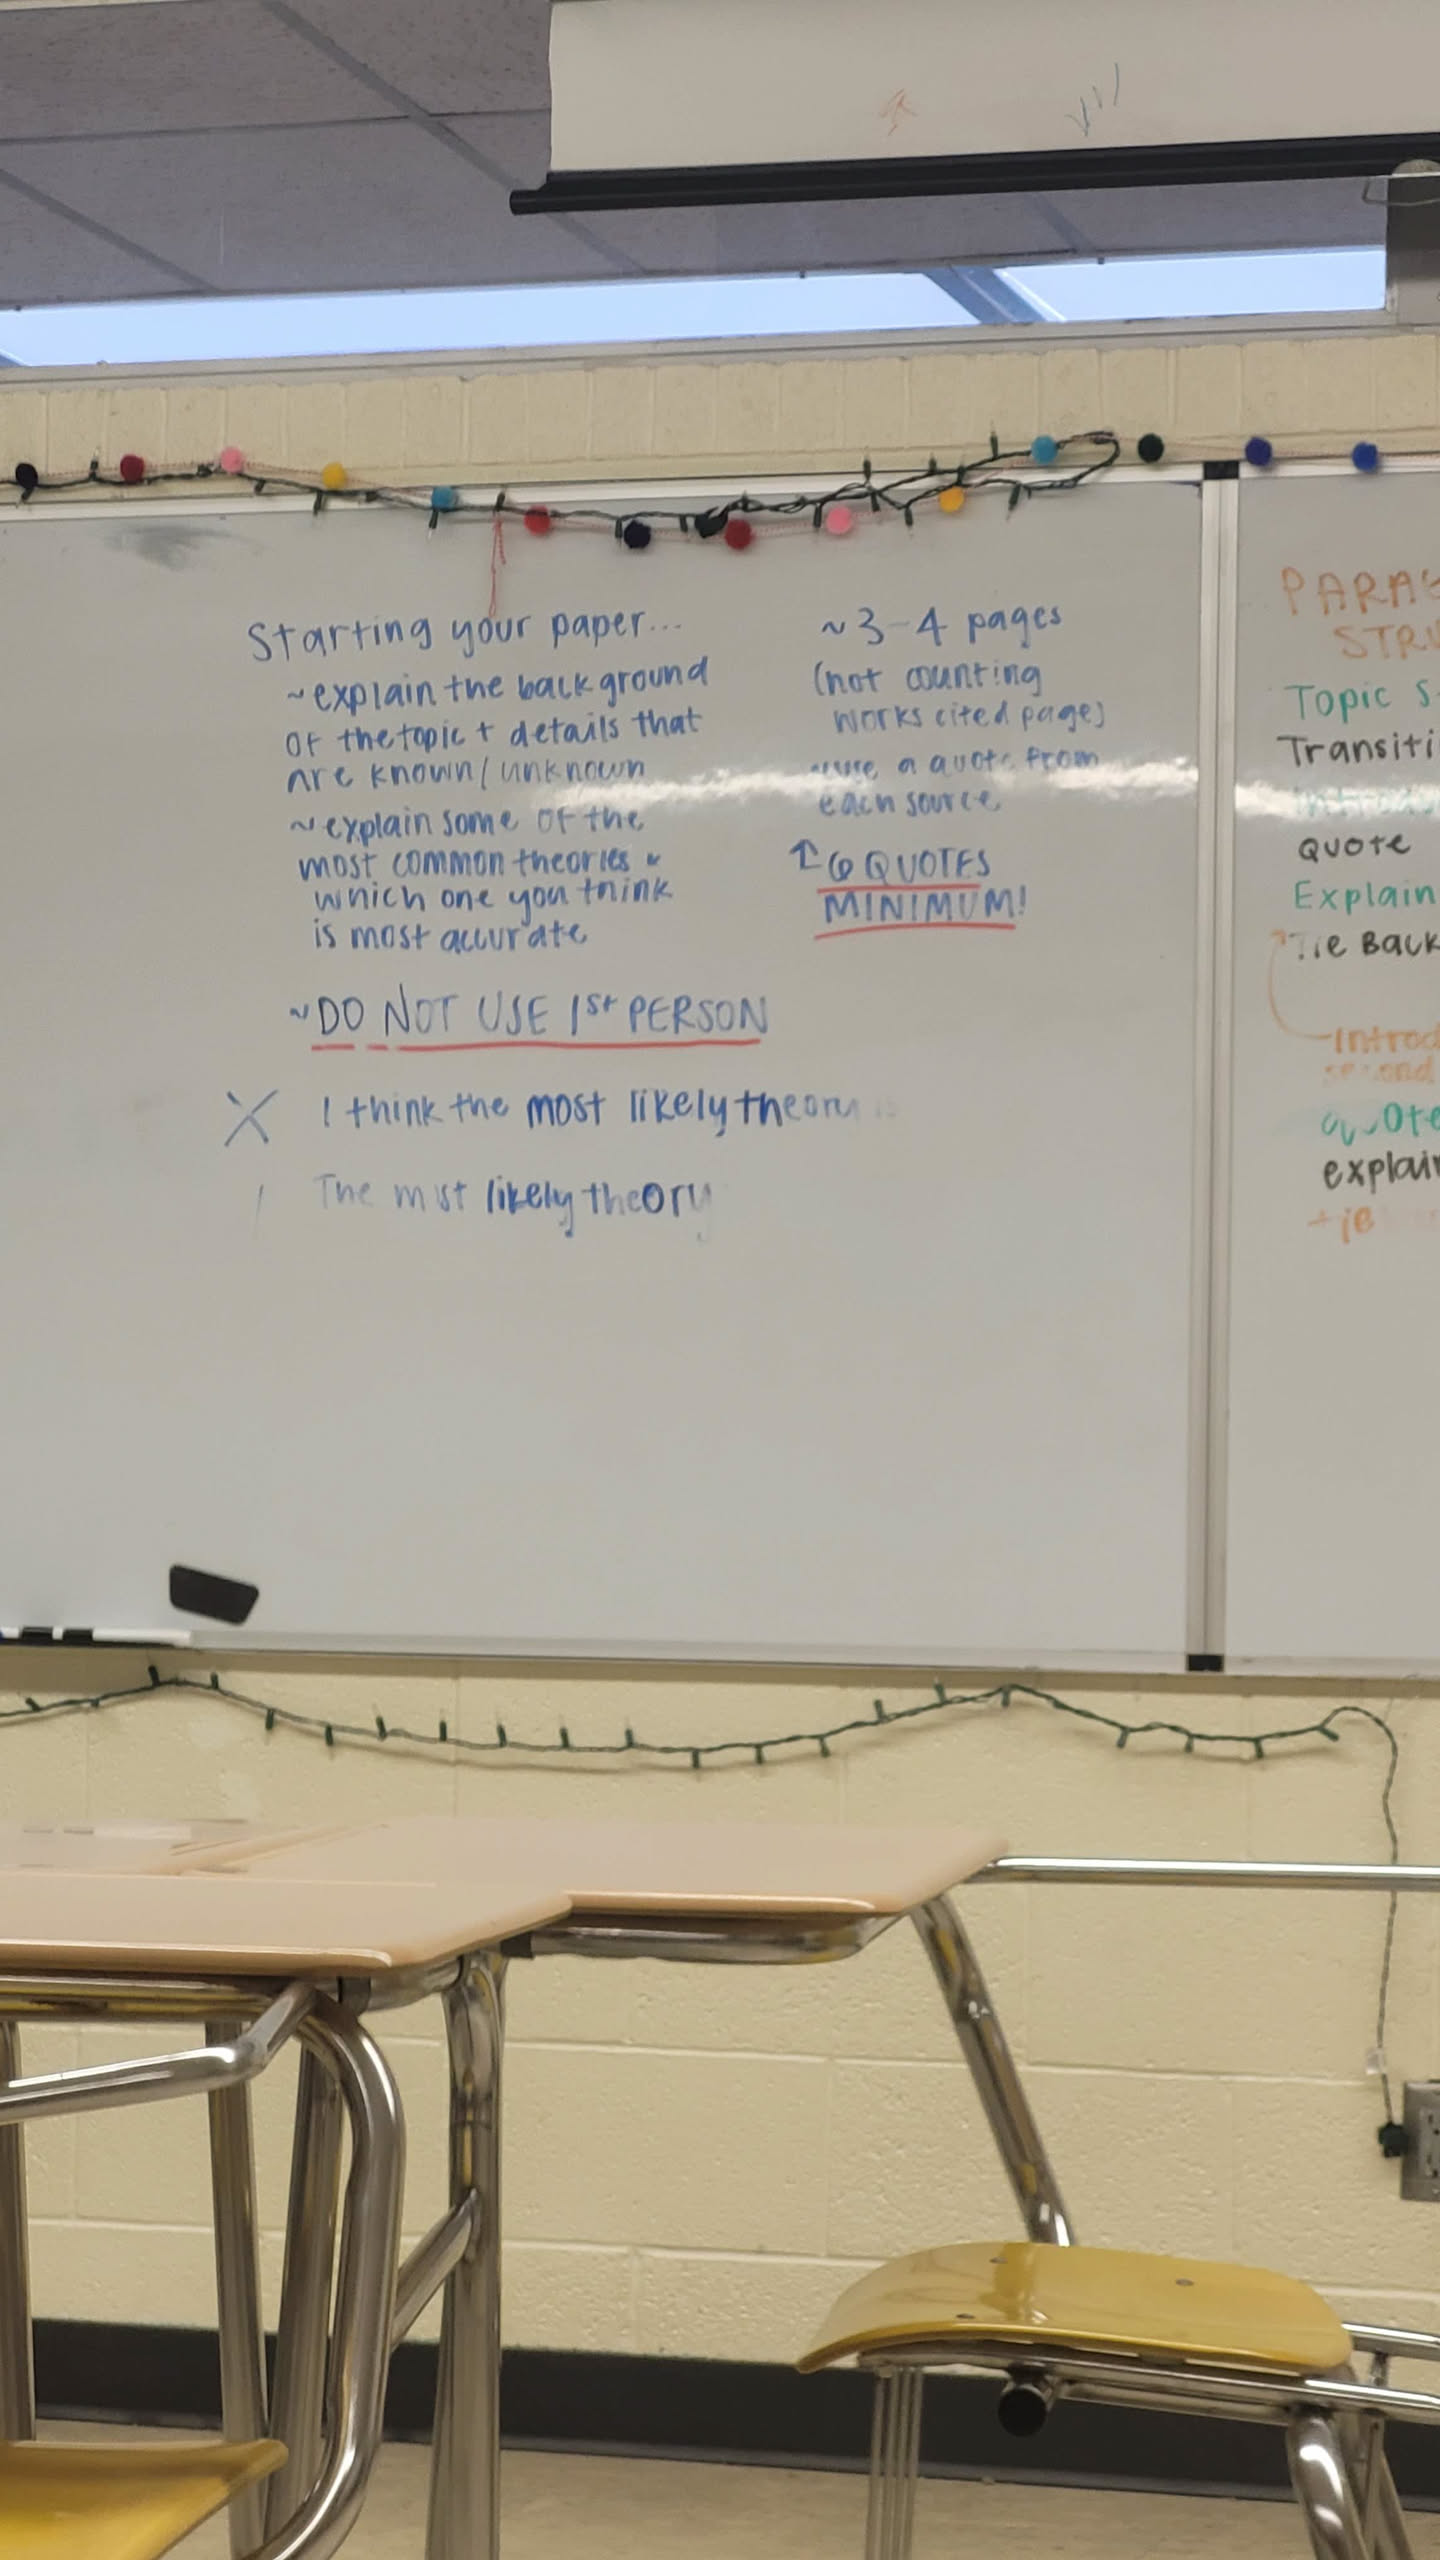 Starting your paper...
~explain the background
of the topic + details that
are known/unknown
~explain some of the
most common theories &
which one you think
is most accurate
~DO NOT USE 1st PERSON
X I think the most likely theory is
The most likely theory
~3-4 pages
(not counting
works cited page)
~use a quote from
each source
↑ 6 QUOTES
MINIMUM!
PARAG
STRU
Topic S
Transiti
quote
Explain
Tie Back
Introd
second
quote
explain
tie